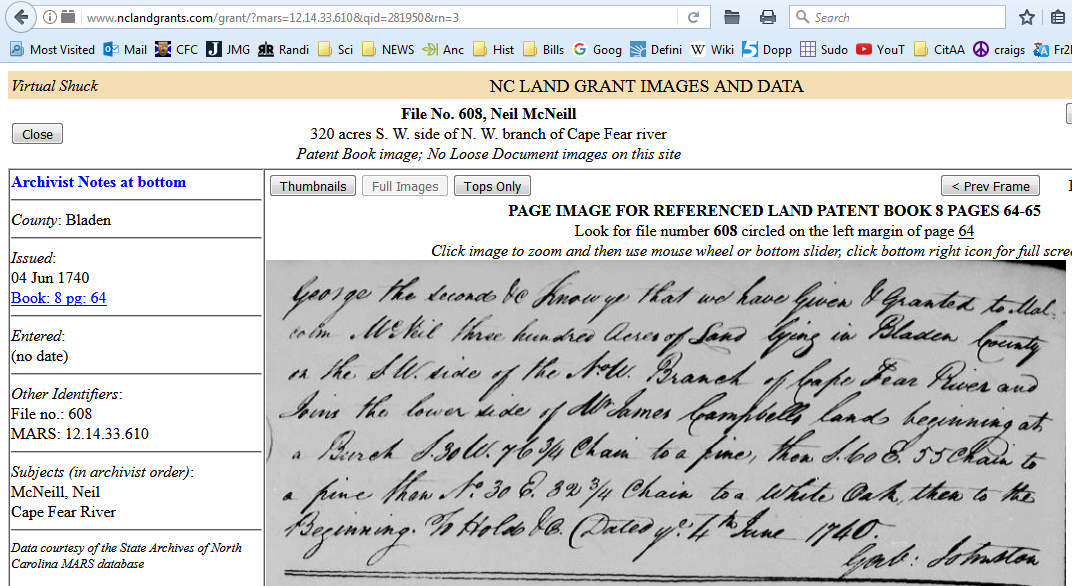 www.nclandgrants.com/grant/?mars=12.14.33.610&qid=281950&rn=3
Search
Most Visited Mail CFC JMG Randi Sci NEWS Anc Hist Bills Goog Defini Wiki Dopp Sudo YouT CitAA craigs Fr2
Virtual Shuck
NC LAND GRANT IMAGES AND DATA
Close
File No. 608, Neil McNeill
320 acres S. W. side of N. W. branch of Cape Fear river
Patent Book image; No Loose Document images on this site
Archivist Notes at bottom
County: Bladen
Issued:
04 Jun 1740
Book: 8 pg: 64
Entered:
(no date)
Other Identifiers:
File no.: 608
MARS: 12.14.33.610
Subjects (in archivist order):
McNeill, Neil
Cape Fear River
Data courtesy of the State Archives of North
Carolina MARS database
Thumbnails Full Images Tops Only < Prev Frame
PAGE IMAGE FOR REFERENCED LAND PATENT BOOK 8 PAGES 64-65
Look for file number 608 circled on the left margin of page 64
Click image to zoom and then use mouse wheel or bottom slider, click bottom right icon for full scre
George the second &c Know ye that we have Given & Granted to Mal-
colm McNeil three hundred Acres of Land lying in Bladen County
on the S W. side of the No W. Branch of Cape Fear River and
Joins the lower side of Mr James Campbells land beginning at
a Burch S. 30 W. 76 3/4 Chain to a pine, then S. 60 E. 55 Chain to
a pine then No 30 E. 32 3/4 Chain to a White Oak, then to the
Beginning. To Hold &c. (Dated ye. 4th June 1740.
Gab: Johnston